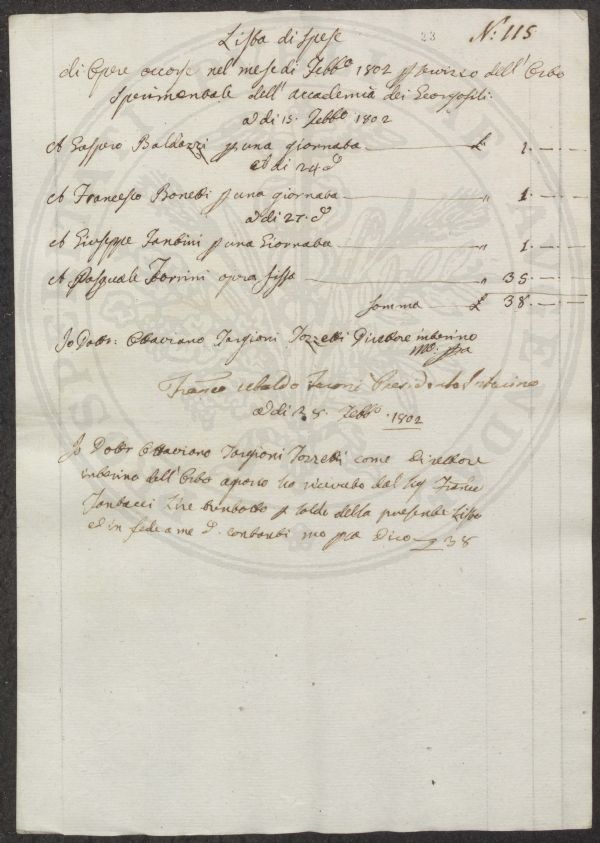 Lista di Spese
23
N: 115
di Opere occorse nel mese di Febb.o 1802 p servizio dell' Orto
Sperimentale dell' accademia dei Georgofili:
a di 15. Febb.o 1802
A Gaspero Baldazzi p una giornata £ 1. — —
A di 24 d.o
A Francesco Bonetti p una giornata " 1 — —
a di 27. d.o
A Giuseppe Tantini p una Giornata " 1 — —
A Pasquale Torrini opera fissa " 35. — —
Somma £ 38. — —
Io Dott: Ottaviano Targioni Tozzetti Direttore interino
mo. ppa
Franco Ubaldo Feroni Presidente Interino
a di 28. Febb.o 1802
Io Dottr Ottaviano Targioni Tozzetti come Direttore
interino dell' Orto agrario ho ricevuto dal Sig Franco
Lire trentotto p saldo della presente Lista
ed in fede a me d. contanti mo ppa dico £ 38